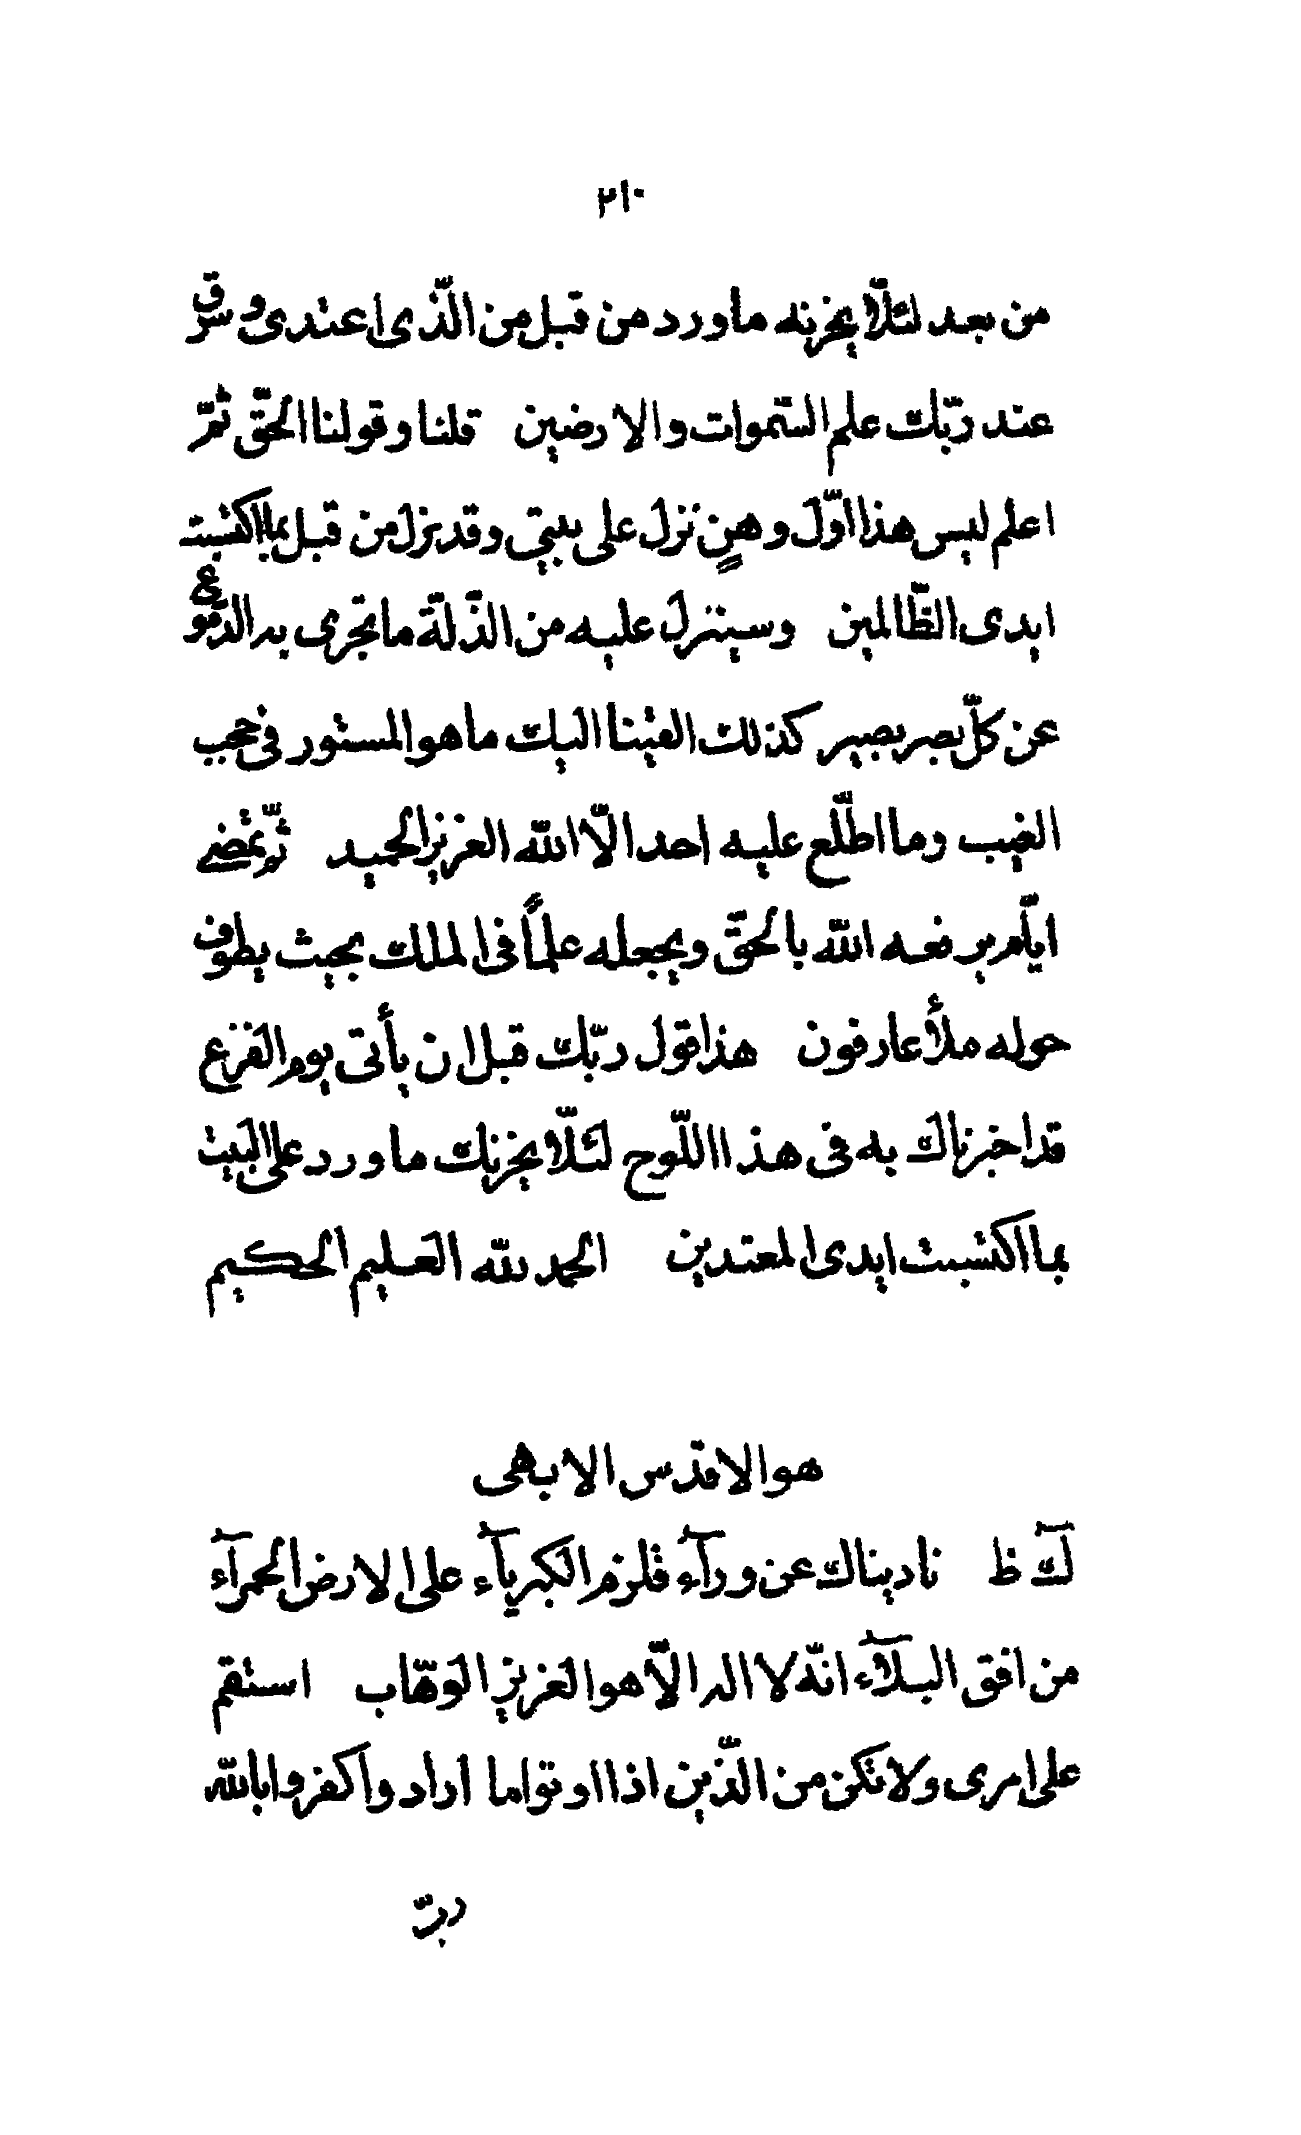 ٢١٠
من بعد لئلّا يحزنه ما ورد من قبل من الّذى اعتدى و سرق
عند ربّك علم السّموات و الارضين قلنا و قولنا الحقّ ثمّ
اعلم ليس هذا اوّل وهنٍ نزل على بيتى و قد نزل من قبل بما اكتسبت
ايدى الظّالمين و سينزل عليه من الذّلّة ما تجرى به الدّموع
عن كلّ بصر بصير كذلك القيناك اليك ما هو المستور فى حجب
الغيب و ما اطّلع عليه احد الّا الله العزيز الحميد ثمّ تمضى
ايّام يرفعه الله بالحقّ و يجعله علماً فى الملك بحيث يطوف
حوله ملأ عارفون هذا قول ربّك قبل ان يأتى يوم الفزع
قد اخبرناك به فى هذا اللّوح لئلّا يحزنك ما ورد على البيت
بما اكتسبت ايدى المعتدين الحمد لله العليم الحكيم
هو الاقدس الابهى
ك ظ ناديناك عن ورآء قلزم الكبريآء على الارض الحمرآء
من افق البلآء انّه لا اله الّا هو العزيز الوهّاب استقم
على امرى و لا تكن من الّذين اذا اوتوا ما ارادوا كفروا بالله
ربّ